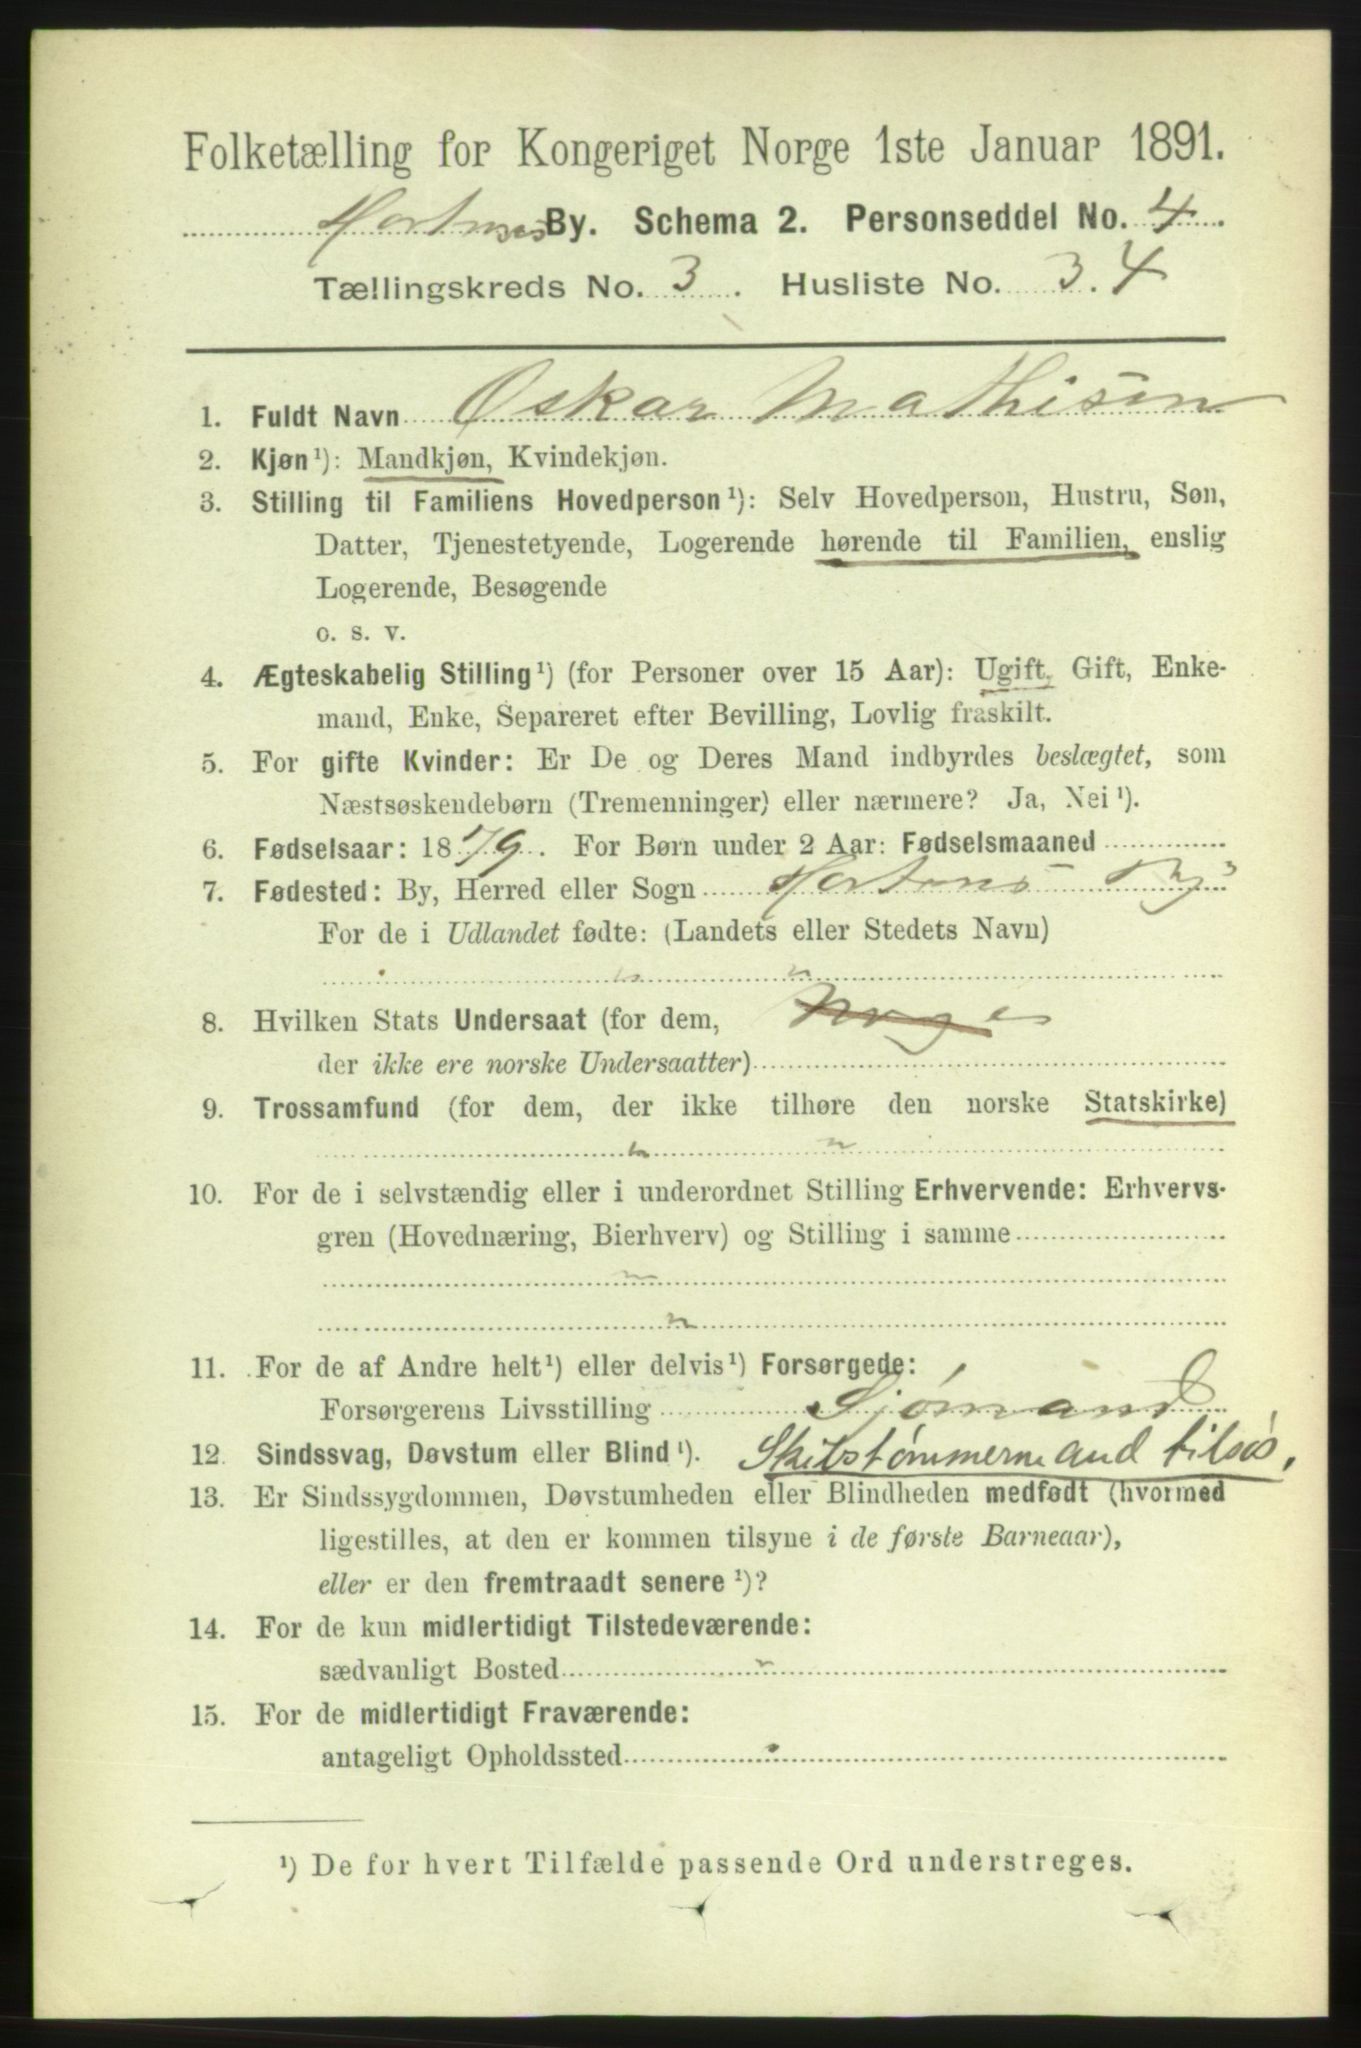 Folketælling for Kongeriget Norge 1ste Januar 1891.
Hortens By. Schema 2. Personseddel No. 4.
Tællingskreds No. 3. Husliste No. 34
1. Fuldt Navn Oskar Mathisen
2. Kjøn¹): Mandkjøn, Kvindekjøn.
3. Stilling til Familiens Hovedperson¹): Selv Hovedperson, Hustru, Søn,
Datter, Tjenestetyende, Logerende hørende til Familien, enslig
Logerende, Besøgende
o. s. v.
4. Ægteskabelig Stilling¹) (for Personer over 15 Aar): Ugift, Gift, Enke-
mand, Enke, Separeret efter Bevilling, Lovlig fraskilt.
5. For gifte Kvinder: Er De og Deres Mand indbyrdes beslægtet, som
Næstsøskendebørn (Tremenninger) eller nærmere? Ja, Nei¹).
6. Fødselsaar: 1879. For Børn under 2 Aar: Fødselsmaaned
7. Fødested: By, Herred eller Sogn Hortens By
For de i Udlandet fødte: (Landets eller Stedets Navn)
" "
8. Hvilken Stats Undersaat (for dem, Norge
der ikke ere norske Undersaatter)
9. Trossamfund (for dem, der ikke tilhøre den norske Statskirke)
" "
10. For de i selvstændig eller i underordnet Stilling Erhvervende: Erhvervs-
gren (Hovednæring, Bierhverv) og Stilling i samme
"
"
11. For de af Andre helt¹) eller delvis¹) Forsørgede:
Forsørgerens Livsstilling Sjømand
12. Sindssvag, Døvstum eller Blind¹). Skibstømmermand tilsøs.
13. Er Sindssygdommen, Døvstumheden eller Blindheden medfødt (hvormed
ligestilles, at den er kommen tilsyne i de første Barneaar),
eller er den fremtraadt senere¹)?
14. For de kun midlertidigt Tilstedeværende:
sædvanligt Bosted "
15. For de midlertidigt Fraværende:
antageligt Opholdssted
¹) De for hvert Tilfælde passende Ord understreges.